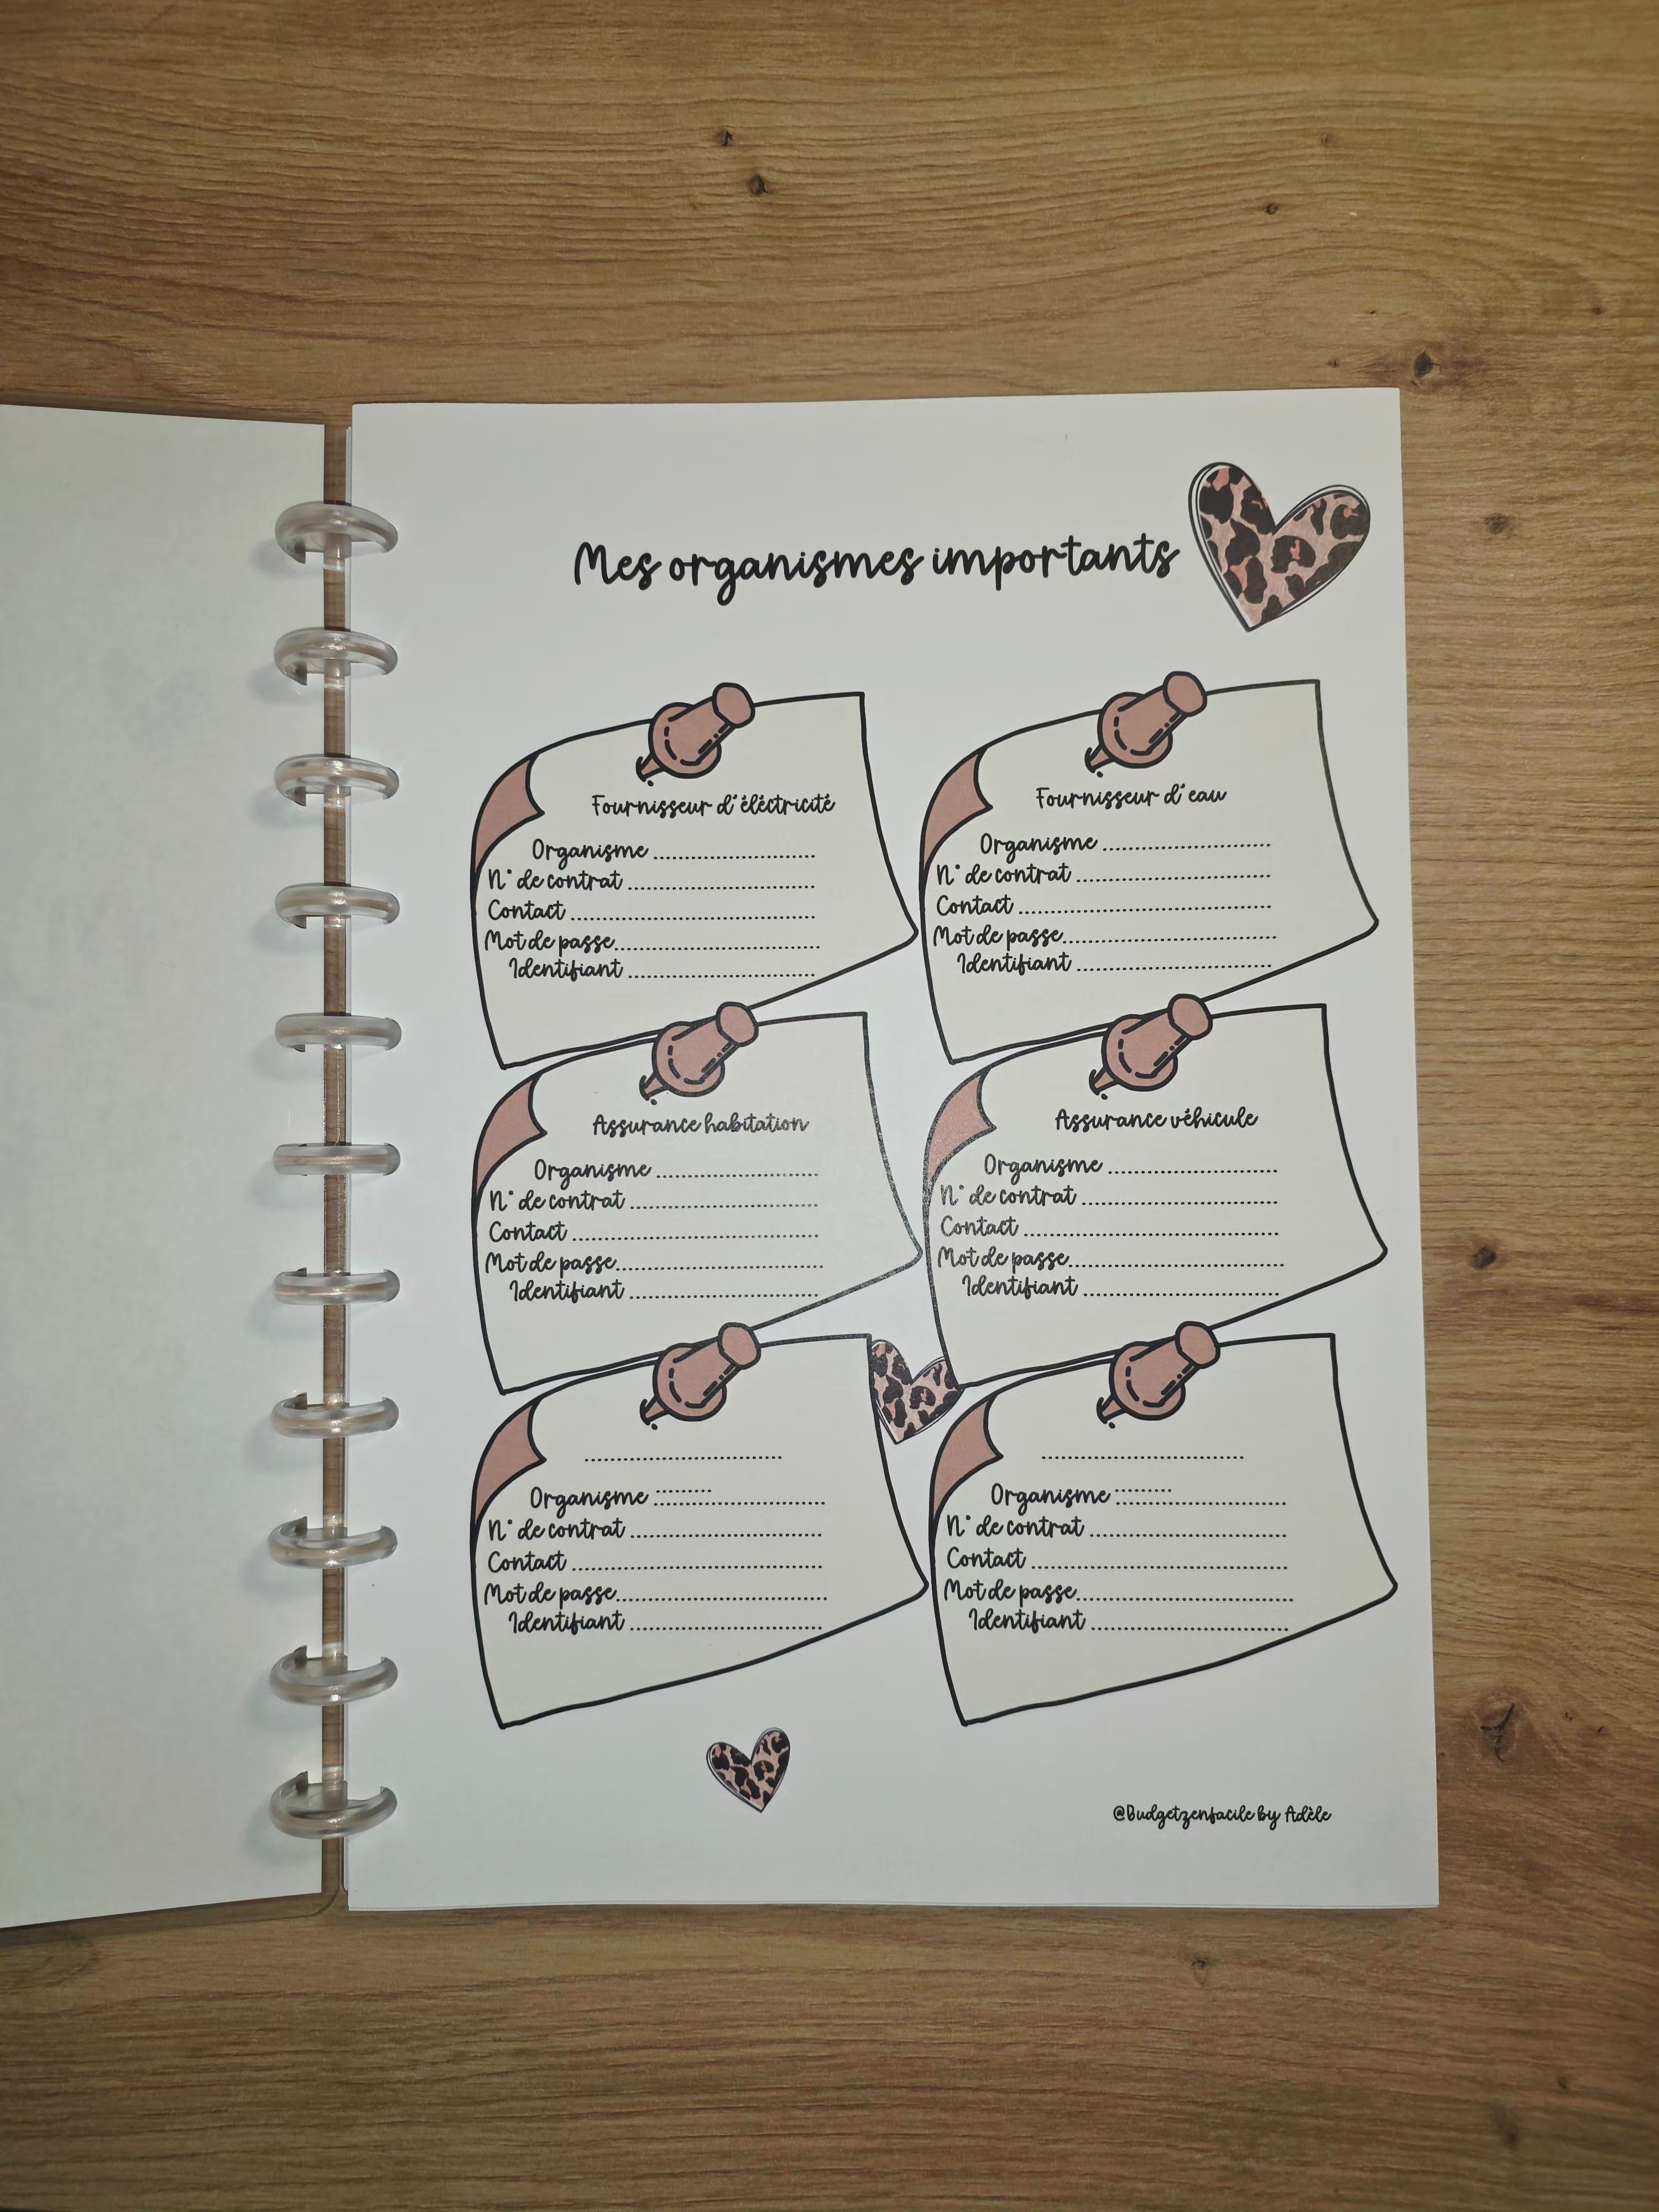 Mes organismes importants
Fournisseur d'éléctricité
Organisme ..............................
N° de contrat ..............................
Contact ..............................
Mot de passe..............................
Identifiant ..............................
Fournisseur d'eau
Organisme ..............................
N° de contrat ..............................
Contact ..............................
Mot de passe..............................
Identifiant ..............................
Assurance habitation
Organisme ..............................
N° de contrat ..............................
Contact ..............................
Mot de passe..............................
Identifiant ..............................
Assurance véhicule
Organisme ..............................
N° de contrat ..............................
Contact ..............................
Mot de passe..............................
Identifiant ..............................
..............................
Organisme ..............................
N° de contrat ..............................
Contact ..............................
Mot de passe..............................
Identifiant ..............................
..............................
Organisme ..............................
N° de contrat ..............................
Contact ..............................
Mot de passe..............................
Identifiant ..............................
@Budgetzenfacile by Adèle